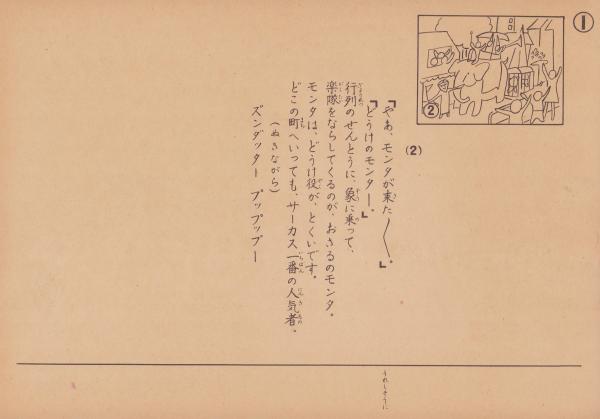 ①
②
(2)
「やあ、モンタが来た〱。」
「どうけのモンター。」
行列のせんとうに、象に乗って、
楽隊をならしてくるのが、おさるのモンタ。
モンタは、どうけ役が、とくいです。
どこの町へいっても、サーカス一番の人気者。
(ぬきながら)
ズンダッター プップップー
うれしそうに